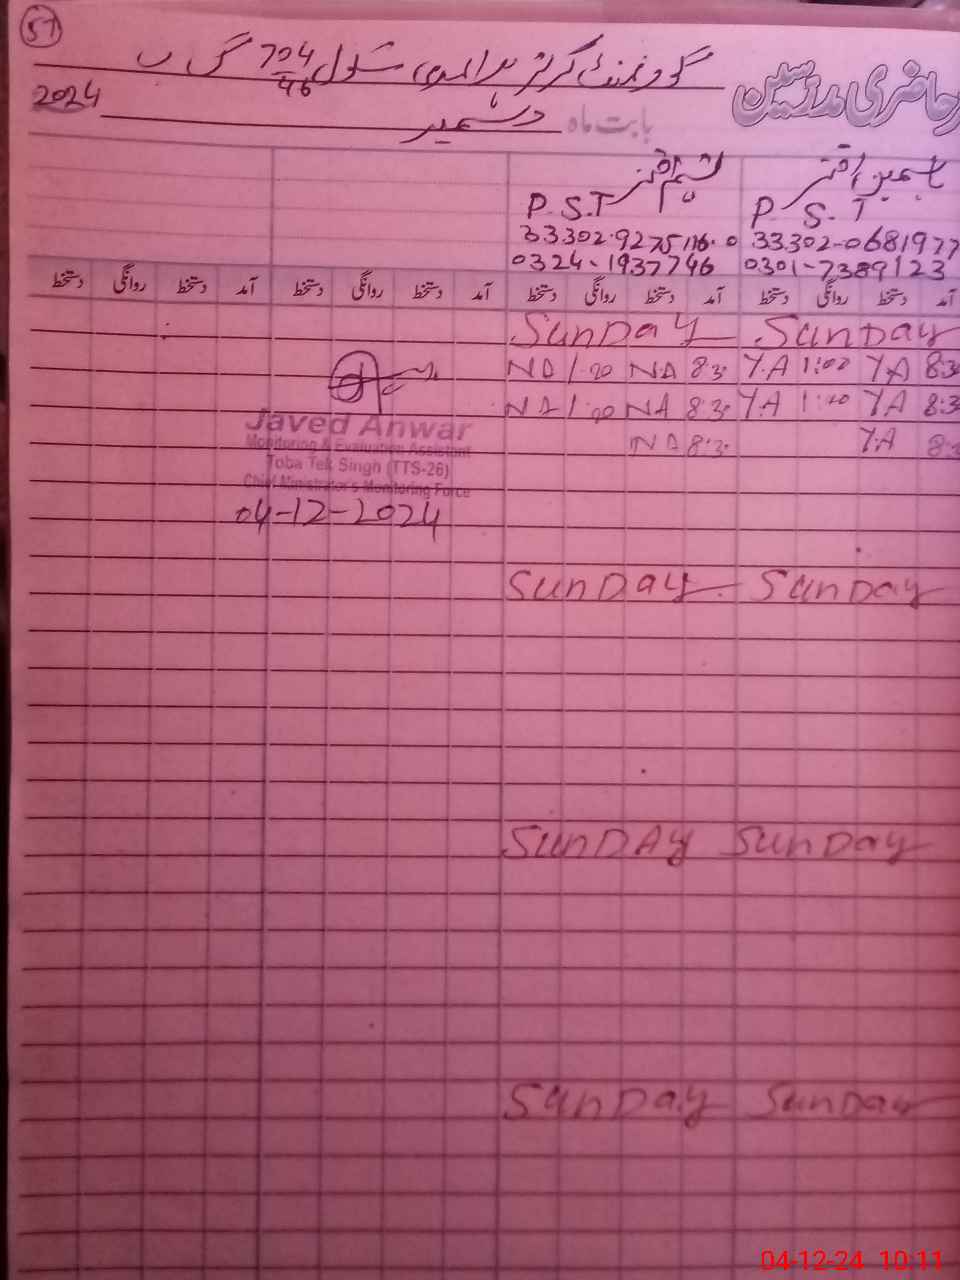 57
گورنمنٹ گرلز پرائمری سکول 704/46 گ ب
حاضری مدرسین
بابت ماہ دسمبر 2024
یاسمین اختر
P.S.T
33302-0681977
0301-7389123
اختر
P.S.T
33302-9275116-0
0324-1937746
آمد دستخط روانگی دستخط آمد دستخط روانگی دستخط آمد دستخط روانگی دستخط آمد دستخط روانگی دستخط
SunDay SunDay
NA 1:00 NA 8:30 Y.A 1:00 Y.A 8:3
NA 1:00 NA 8:30 Y.A 1:00 Y.A 8:3
NA 8:30 Y.A 8:3
Javed Anwar
Monitoring & Evaluation Assistant
Toba Tek Singh (TTS-26)
Chief Minister's Monitoring Force
04-12-2024
SunDay SunDay
SunDAy SunDay
SunDay SunDay
04-12-24 10:11